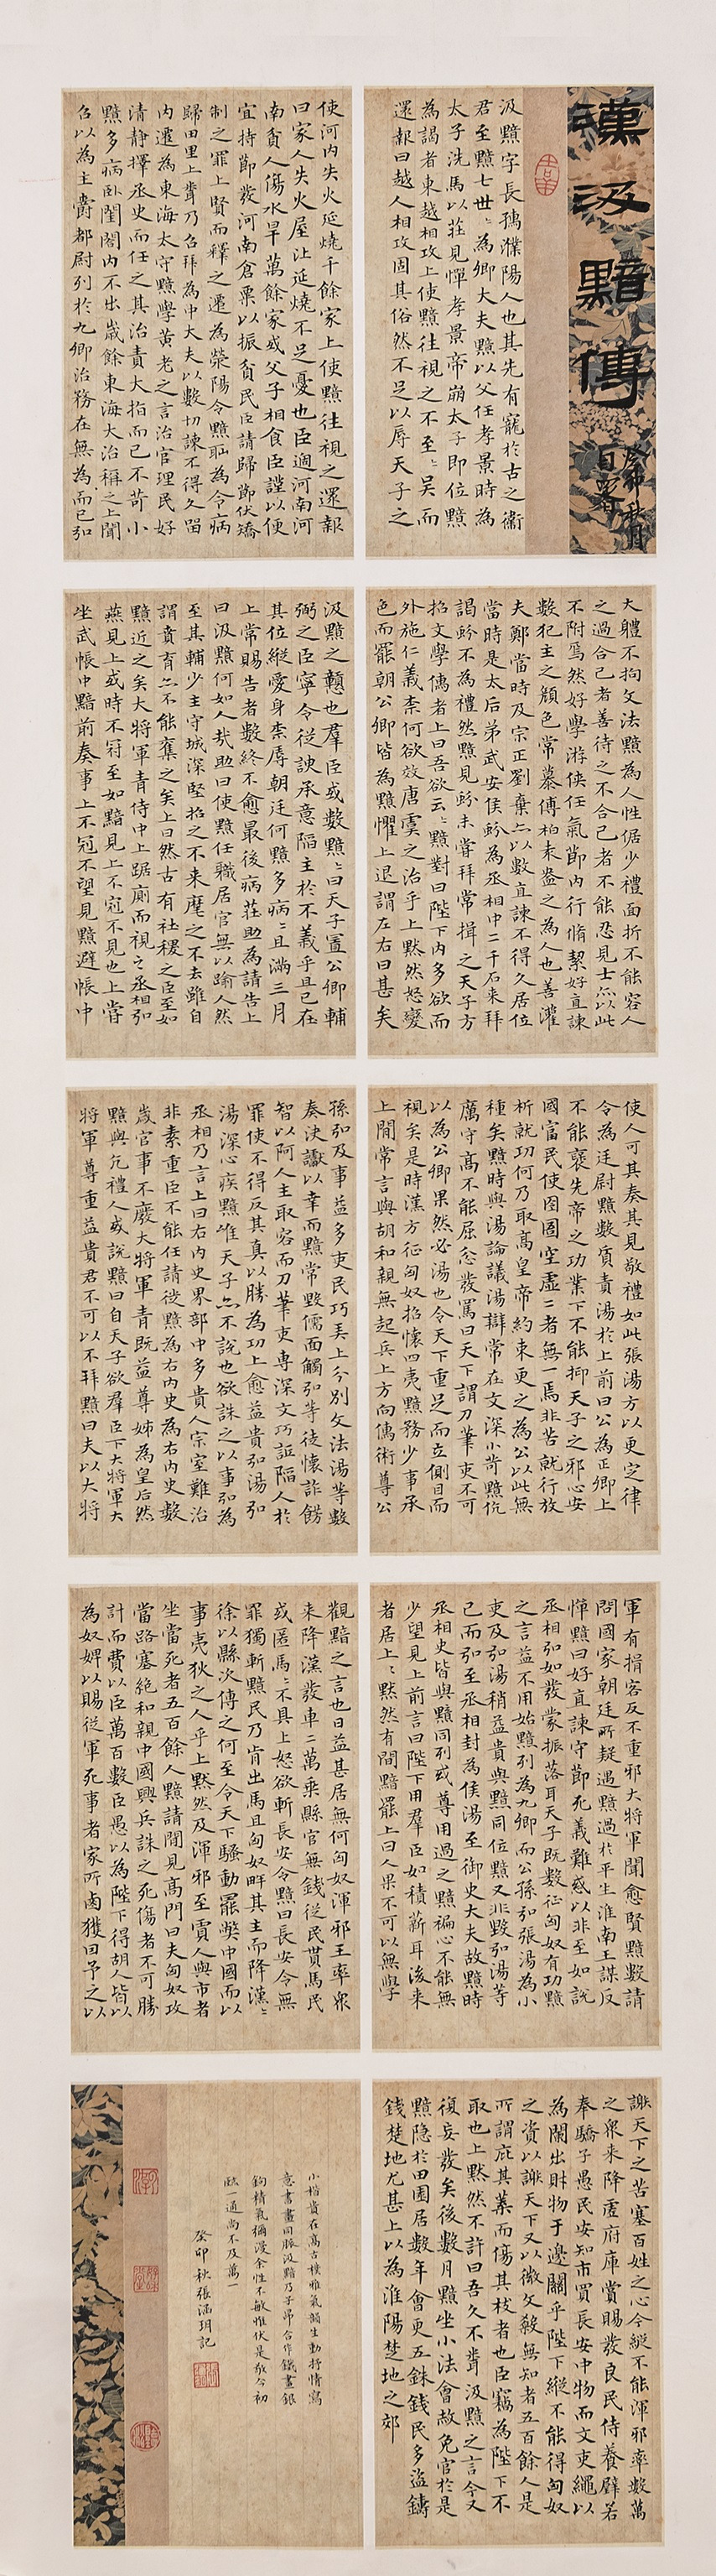 漢汲黯傳
癸卯秋月
自署
汲黯字長孺濮陽人也其先有寵於古之衛
君至黯七世〻為卿大夫黯以父任孝景時為
太子洗馬以莊見憚孝景帝崩太子即位黯
為謁者東越相攻上使黯往視之不至〻吳而
還報曰越人相攻固其俗然不足以辱天子之
使河內失火延燒千餘家上使黯往視之還報
曰家人失火屋比延燒不足憂也臣過河南河
南貧人傷水旱萬餘家或父子相食臣謹以便
宜持節發河南倉粟以振貧民臣請歸節伏矯
制之罪上賢而釋之遷為滎陽令黯恥為令病
歸田里上聞乃召拜為中大夫以數切諫不得久留
內遷為東海太守黯學黃老之言治官理民好
清靜擇丞史而任之其治責大指而已不苛小
黯多病臥閨閤內不出歲餘東海大治稱之上聞
召以為主爵都尉列於九卿治務在無為而已弘
大體不拘文法黯為人性倨少禮面折不能容人
之過合己者善待之不合己者不能忍見士亦以此
不附焉然好學游俠任氣節內行脩絜好直諫
數犯主之顏色常慕傅柏袁盎之為人也善灌
夫鄭當時及宗正劉棄亦以數直諫不得久居位
當時是太后弟武安侯蚡為丞相中二千石來拜
謁蚡不為禮然黯見蚡未嘗拜常揖之天子方
招文學儒者上曰吾欲云〻黯對曰陛下內多欲而
外施仁義柰何欲效唐虞之治乎上黙然怒變
色而罷朝公卿皆為黯懼上退謂左右曰甚矣
汲黯之戇也羣臣或數黯〻曰天子置公卿輔
弼之臣寧令從諛承意陷主於不義乎且已在
其位縱愛身柰辱朝廷何黯多病〻且滿三月
上常賜告者數終不愈最後病莊助為請告上
曰汲黯何如人㢤助曰使黯任職居官無以踰人然
至其輔少主守城深堅招之不來麾之不去雖自
謂賁育亦不能奪之矣上曰然古有社稷之臣至如
黯近之矣大將軍青侍中上踞廁而視之丞相弘
燕見上或時不冠至如黯見上不冠不見也上嘗
坐武帳中黯前奏事上不冠不望見黯避帳中
使人可其奏其見敬禮如此張湯方以更定律
令為廷尉黯數質責湯於上前曰公為正卿上
不能襃先帝之功業下不能抑天子之邪心安
國富民使囹圄空虛二者無一焉非苦就行放
析就功何乃取高皇帝約束更之為公以此無
種矣黯時與湯論議湯辯常在文深小苛黯伉
厲守高不能屈忿發罵曰天下謂刀筆吏不可
以為公卿果然必湯也令天下重足而立側目而
視矣是時漢方征匈奴招懷四夷黯務少事承
上閒常言與胡和親無起兵上方向儒術尊公
孫弘及事益多吏民巧弄上分別文法湯等數
奏決讞以幸而黯常毀儒面觸弘等徒懷詐飾
智以阿人主取容而刀筆吏專深文巧詆陷人於
罪使不得反其真以勝為功上愈益貴弘湯弘
湯深心疾黯唯天子亦不說也欲誅之以事弘為
丞相乃言上曰右內史界部中多貴人宗室難治
非素重臣不能任請徙黯為右內史為右內史數
歲官事不廢大將軍青既益尊姊為皇后然
黯與亢禮人或說黯曰自天子欲羣臣下大將軍大
將軍尊重益貴君不可以不拜黯曰夫以大將
軍有揖客反不重邪大將軍聞愈賢黯數請
問國家朝廷所疑遇黯過於平生淮南王謀反
憚黯曰好直諫守節死義難惑以非至如說
丞相弘如發蒙振落耳天子既數征匈奴有功黯
之言益不用始黯列為九卿而公孫弘張湯為小
吏及弘湯稍益貴與黯同位黯又非毀弘湯等
已而弘至丞相封為侯湯至御史大夫故黯時
丞相史皆與黯同列或尊用過之黯褊心不能無
少望見上前言曰陛下用羣臣如積薪耳後來
者居上〻黙然有閒黯罷上曰人果不可以無學
觀黯之言也日益甚居無何匈奴渾邪王率眾
來降漢發車二萬乘縣官無錢從民貰馬民
或匿馬〻不具上怒欲斬長安令黯曰長安令無
罪獨斬黯民乃肯出馬且匈奴畔其主而降漢〻
徐以縣次傳之何至令天下騷動罷獘中國而以
事夷狄之人乎上黙然及渾邪至賈人與市者
坐當死者五百餘人黯請閒見高門曰夫匈奴攻
當路塞絕和親中國興兵誅之死傷者不可勝
計而費以臣萬百數臣愚以為陛下得胡人皆以
為奴婢以賜從軍死事者家所鹵獲因予之以
謝天下之苦塞百姓之心今縱不能渾邪率數萬
之眾來降虛府庫賞賜發良民侍養譬若
奉驕子愚民安知市買長安中物而文吏繩以
為闌出財物于邊關乎陛下縱不能得匈奴
之資以謝天下又以微文殺無知者五百餘人是
所謂庇其葉而傷其枝者也臣竊為陛下不
取也上黙然不許曰吾久不聞汲黯之言今又
復妄發矣後數月黯坐小法會赦免官於是
黯隱於田園居數年會更五銖錢民多盜鑄
錢楚地尤甚上以為淮陽楚地之郊
小楷貴在高古樸雅氣韻生動抒情寫
意書畫同脈汲黯乃子昂合作鐵畫銀
鉤精氣彌漫余性不敏惟伏是敬今初
臨一通尚不及萬一
癸卯秋張滆玥記